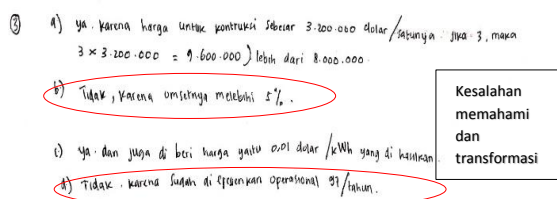 ③ a) ya. karena harga untuk kontruksi sebesar 3.200.000 dolar/satunya. jika 3, maka
3 x 3.200.000 = 9.600.000) lebih dari 8.000.000.
b) Tidak, karena omsetnya melebihi 5%.
c) ya. dan juga di beri harga yaitu 0,01 dolar /kWh yang di hasilkan
d) Tidak. karena sudah di operasional 97/tahun.
Kesalahan
memahami
dan
transformasi